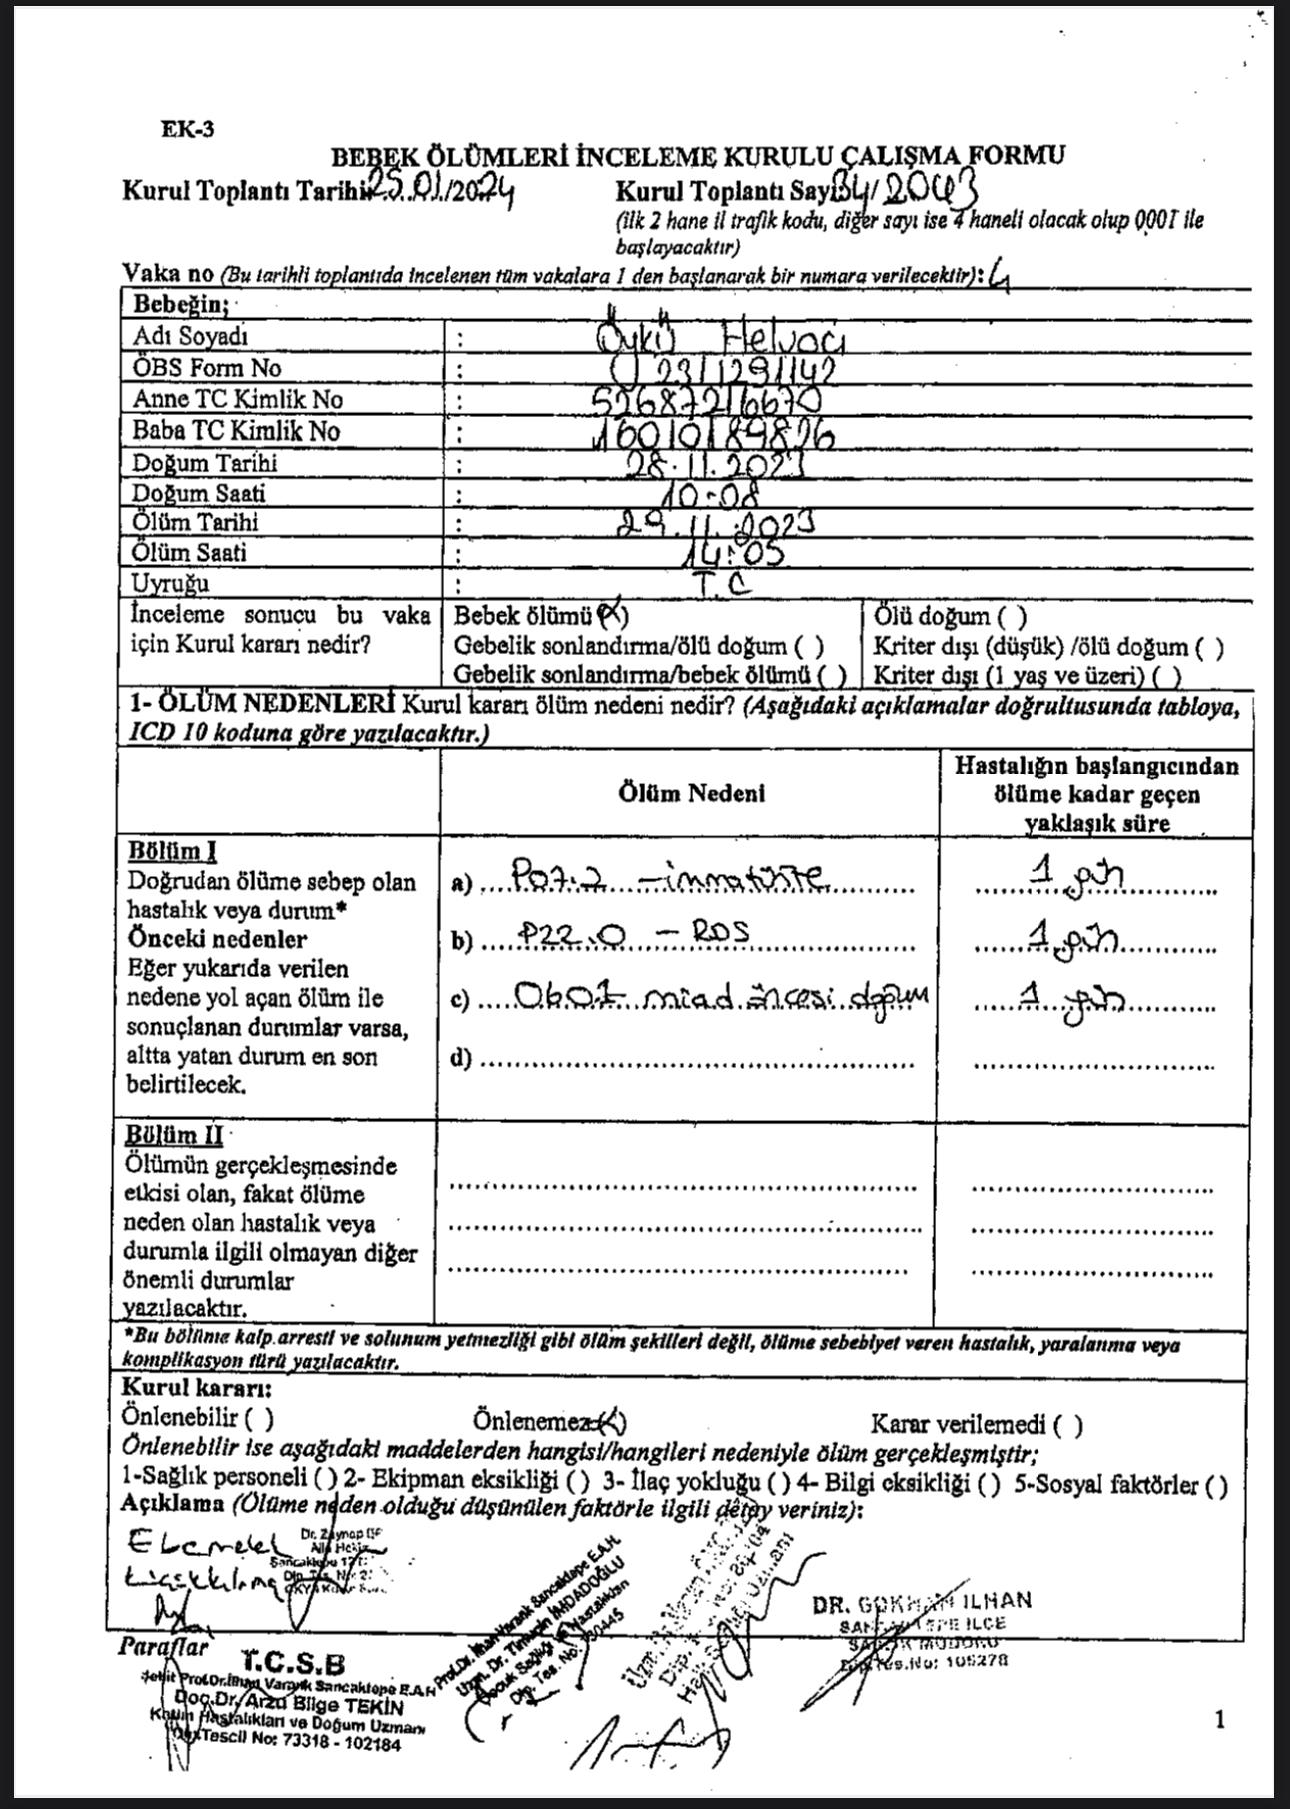 EK-3
BEBEK ÖLÜMLERİ İNCELEME KURULU ÇALIŞMA FORMU
Kurul Toplantı Tarihi: 25.01/2024 Kurul Toplantı Sayı 34/2043
(ilk 2 hane il trafik kodu, diğer sayı ise 4 haneli olacak olup 0001 ile
başlayacaktır)
Vaka no (Bu tarihli toplantıda incelenen tüm vakalara 1 den başlanarak bir numara verilecektir): 4
Bebeğin;
Adı Soyadı : Öykü Helvacı
ÖBS Form No : 0231291142
Anne TC Kimlik No : 52687216670
Baba TC Kimlik No : 16010189826
Doğum Tarihi : 28.11.2023
Doğum Saati : 10:08
Ölüm Tarihi : 29.11.2023
Ölüm Saati : 14:05
Uyruğu : T.C
İnceleme sonucu bu vaka için Kurul kararı nedir?
Bebek ölümü (X) Ölü doğum ( )
Gebelik sonlandırma/ölü doğum ( ) Kriter dışı (düşük) /ölü doğum ( )
Gebelik sonlandırma/bebek ölümü ( ) Kriter dışı (1 yaş ve üzeri) ( )
1- ÖLÜM NEDENLERİ Kurul kararı ölüm nedeni nedir? (Aşağıdaki açıklamalar doğrultusunda tabloya,
ICD 10 koduna göre yazılacaktır.)
Ölüm Nedeni
Hastalığın başlangıcından
ölüme kadar geçen
yaklaşık süre
Bölüm I
Doğrudan ölüme sebep olan
hastalık veya durum*
Önceki nedenler
Eğer yukarıda verilen
nedene yol açan ölüm ile
sonuçlanan durumlar varsa,
altta yatan durum en son
belirtilecek.
a) P07.2 - immatürite 1 gün
b) P22.0 - RDS 1 gün
c) O60.1 miad öncesi doğum 1 gün
d)
Bölüm II
Ölümün gerçekleşmesinde
etkisi olan, fakat ölüme
neden olan hastalık veya
durumla ilgili olmayan diğer
önemli durumlar
yazılacaktır.
*Bu bölüme kalp arresti ve solunum yetmezliği gibi ölüm şekilleri değil, ölüme sebebiyet veren hastalık, yaralanma veya
komplikasyon türü yazılacaktır.
Kurul kararı:
Önlenebilir ( ) Önlenemez (X) Karar verilemedi ( )
Önlenebilir ise aşağıdaki maddelerden hangisi/hangileri nedeniyle ölüm gerçekleşmiştir;
1-Sağlık personeli ( ) 2- Ekipman eksikliği ( ) 3- İlaç yokluğu ( ) 4- Bilgi eksikliği ( ) 5-Sosyal faktörler ( )
Açıklama (Ölüme neden olduğu düşünülen faktörle ilgili detay veriniz):
Dr. Zeynep
Prof.Dr. İlhan Varank Sancaktepe E.A.H.
Uzm. Dr. Timuçin İMDADOĞLU
Çocuk Sağlığı ve Hastalıkları
Dip. Tes. No:
DR. GÖKHAN İLHAN
SANCAKTEPE İLÇE
SAĞLIK MÜDÜRÜ
Dip.Tes.No: 105278
Paraflar
T.C.S.B
Şehit Prof.Dr.İlhan Varank Sancaktepe E.A.H
Doç.Dr. Arzu Bilge TEKİN
Kadın Hastalıkları ve Doğum Uzmanı
Dip.Tescil No: 73318 - 102184
1